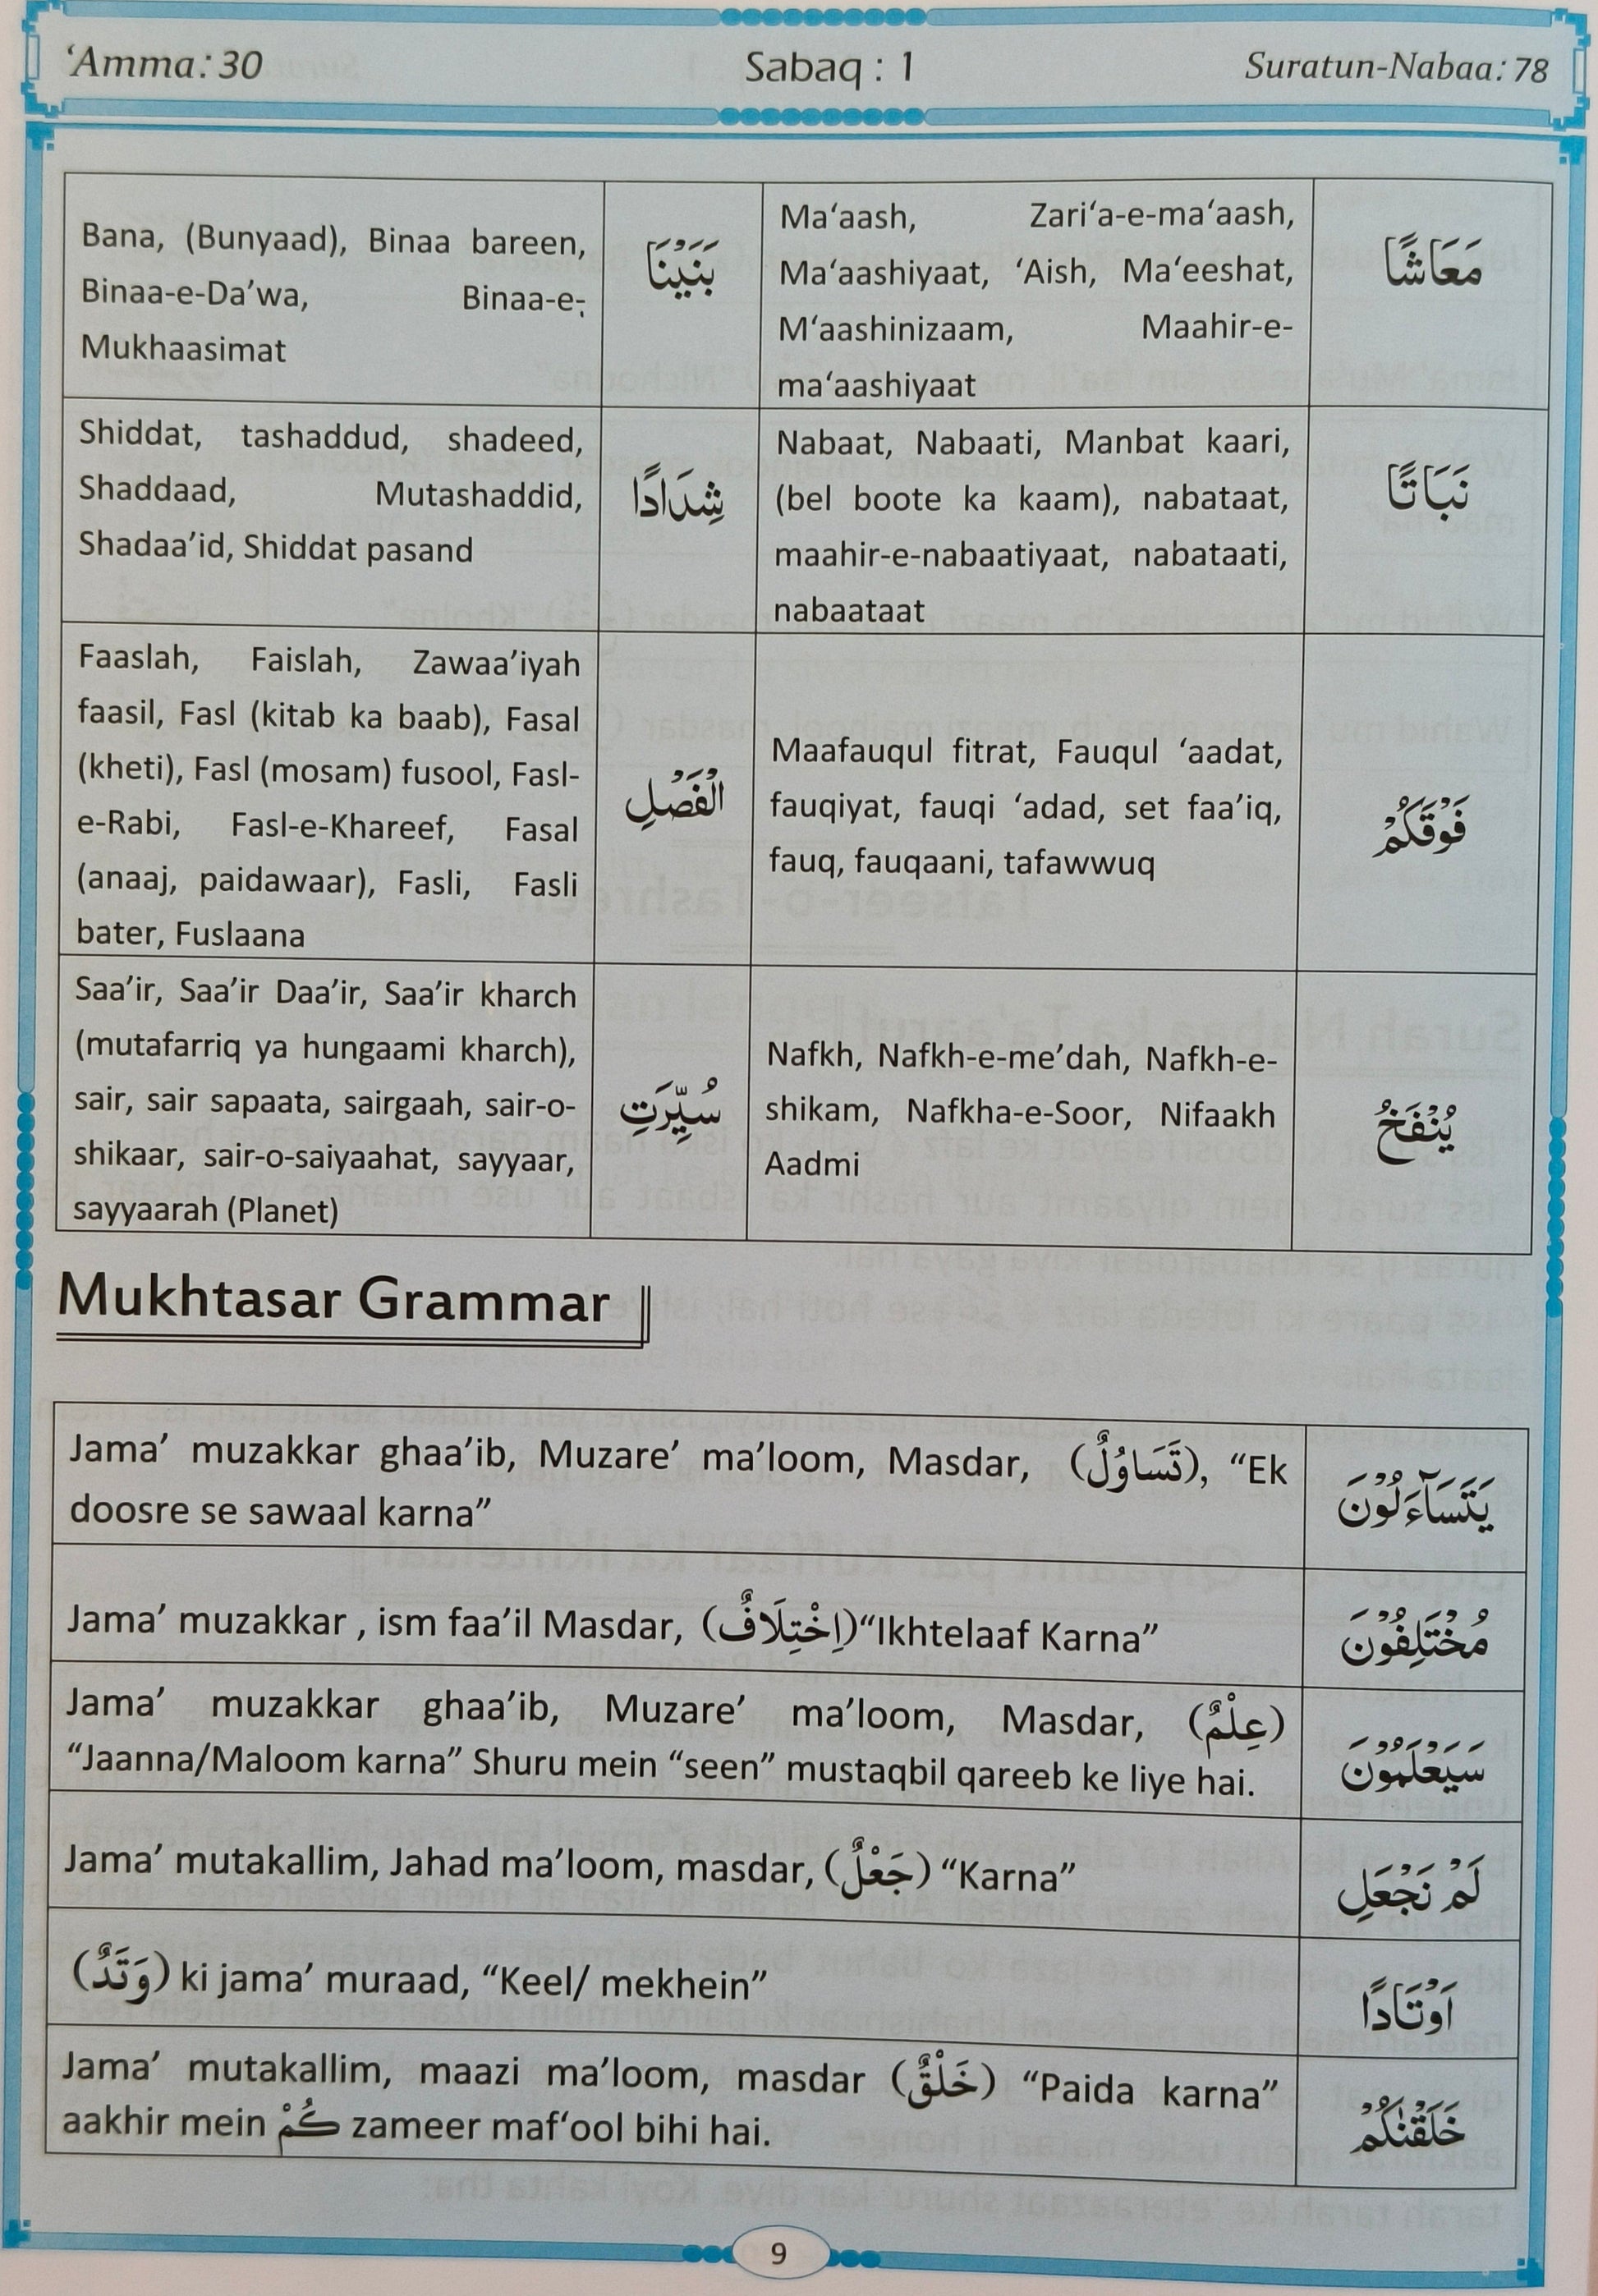 ‘Amma: 30
Sabaq : 1
Suratun-Nabaa: 78
Bana, (Bunyaad), Binaa bareen,
Binaa-e-Da’wa, Binaa-e-
Mukhaasimat
بَنَيْنَا
Ma‘aash, Zari‘a-e-ma‘aash,
Ma‘aashiyaat, ‘Aish, Ma‘eeshat,
M‘aashinizaam, Maahir-e-
ma‘aashiyaat
مَعَاشًا
Shiddat, tashaddud, shadeed,
Shaddaad, Mutashaddid,
Shadaa’id, Shiddat pasand
شِدَادًا
Nabaat, Nabaati, Manbat kaari,
(bel boote ka kaam), nabataat,
maahir-e-nabaatiyaat, nabataati,
nabaataat
نَبَاتًا
Faaslah, Faislah, Zawaa’iyah
faasil, Fasl (kitab ka baab), Fasal
(kheti), Fasl (mosam) fusool, Fasl-
e-Rabi, Fasl-e-Khareef, Fasal
(anaaj, paidawaar), Fasli, Fasli
bater, Fuslaana
الْفَصْلِ
Maafauqul fitrat, Fauqul ‘aadat,
fauqiyat, fauqi ‘adad, set faa’iq,
fauq, fauqaani, tafawwuq
فَوْقَكُمْ
Saa’ir, Saa’ir Daa’ir, Saa’ir kharch
(mutafarriq ya hungaami kharch),
sair, sair sapaata, sairgaah, sair-o-
shikaar, sair-o-saiyaahat, sayyaar,
sayyaarah (Planet)
سُيِّرَتِ
Nafkh, Nafkh-e-me’dah, Nafkh-e-
shikam, Nafkha-e-Soor, Nifaakh
Aadmi
يُنْفَخُ
Mukhtasar Grammar
Jama’ muzakkar ghaa’ib, Muzare’ ma’loom, Masdar, (تَسَاوُلٌ), “Ek
doosre se sawaal karna”
يَتَسَآءَلُوْنَ
Jama’ muzakkar , ism faa’il Masdar, (اِخْتِلَافٌ)“Ikhtelaaf Karna”
مُخْتَلِفُوْنَ
Jama’ muzakkar ghaa’ib, Muzare’ ma’loom, Masdar, (عِلْمٌ)
“Jaanna/Maloom karna” Shuru mein “seen” mustaqbil qareeb ke liye hai.
سَيَعْلَمُوْنَ
Jama’ mutakallim, Jahad ma’loom, masdar, (جَعْلٌ) “Karna”
لَمْ نَجْعَلِ
(وَتَدٌ) ki jama’ muraad, “Keel/ mekhein”
اَوْتَادًا
Jama’ mutakallim, maazi ma’loom, masdar (خَلْقٌ) “Paida karna”
aakhir mein كُمْ zameer maf‘ool bihi hai.
خَلَقْنٰكُمْ
9